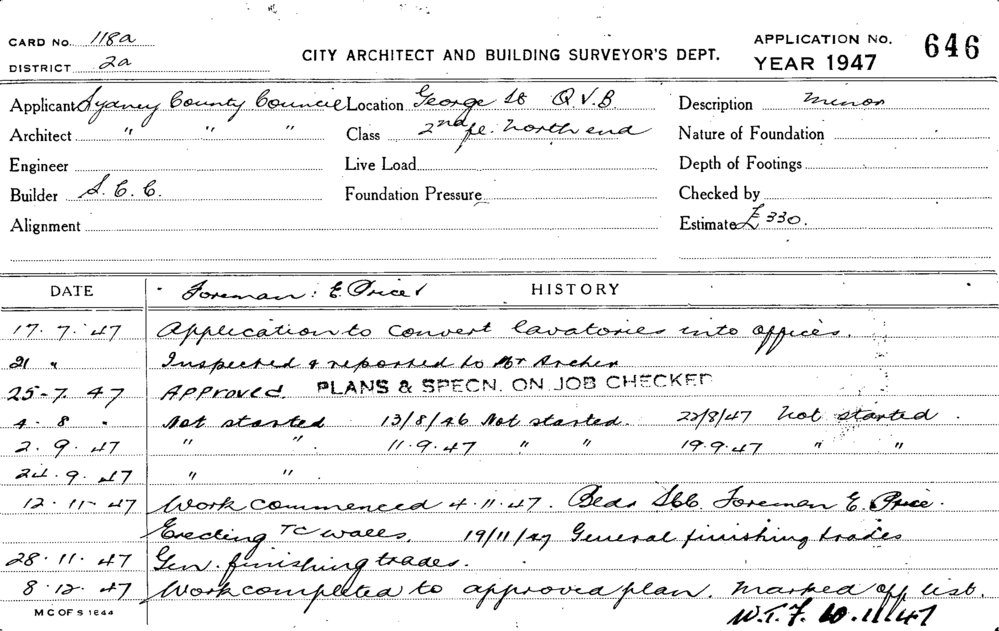 CARD No. 118a
DISTRICT 2a
CITY ARCHITECT AND BUILDING SURVEYOR'S DEPT.
APPLICATION No. 646
YEAR 1947
Applicant Sydney County Council Location George St Q.V.B. Description minor
Architect " " " Class 2nd fl. North end Nature of Foundation
Engineer Live Load Depth of Footings
Builder S.C.C. Foundation Pressure Checked by
Alignment Estimate £330.
DATE Foreman: E. Price HISTORY
17.7.47 Application to convert lavatories into offices.
21 " Inspected & reported to Mr Archer
25-7.47 Approved. PLANS & SPECN. ON JOB CHECKED
4.8 " Not started 13/8/46 Not started. 22/8/47 Not started.
2.9.47 " " 11.9.47 " " 19.9.47 " "
24.9.47 " "
12.11.47 Work commenced 4.11.47. Bldr SCC. Foreman E. Price.
Erecting TC walls. 19/11/47 General finishing trades
28.11.47 Gen. finishing trades.
8.12.47 Work completed to approved plan. Marked off list.
M C OF S 1644 W.T.F. 10.11.47